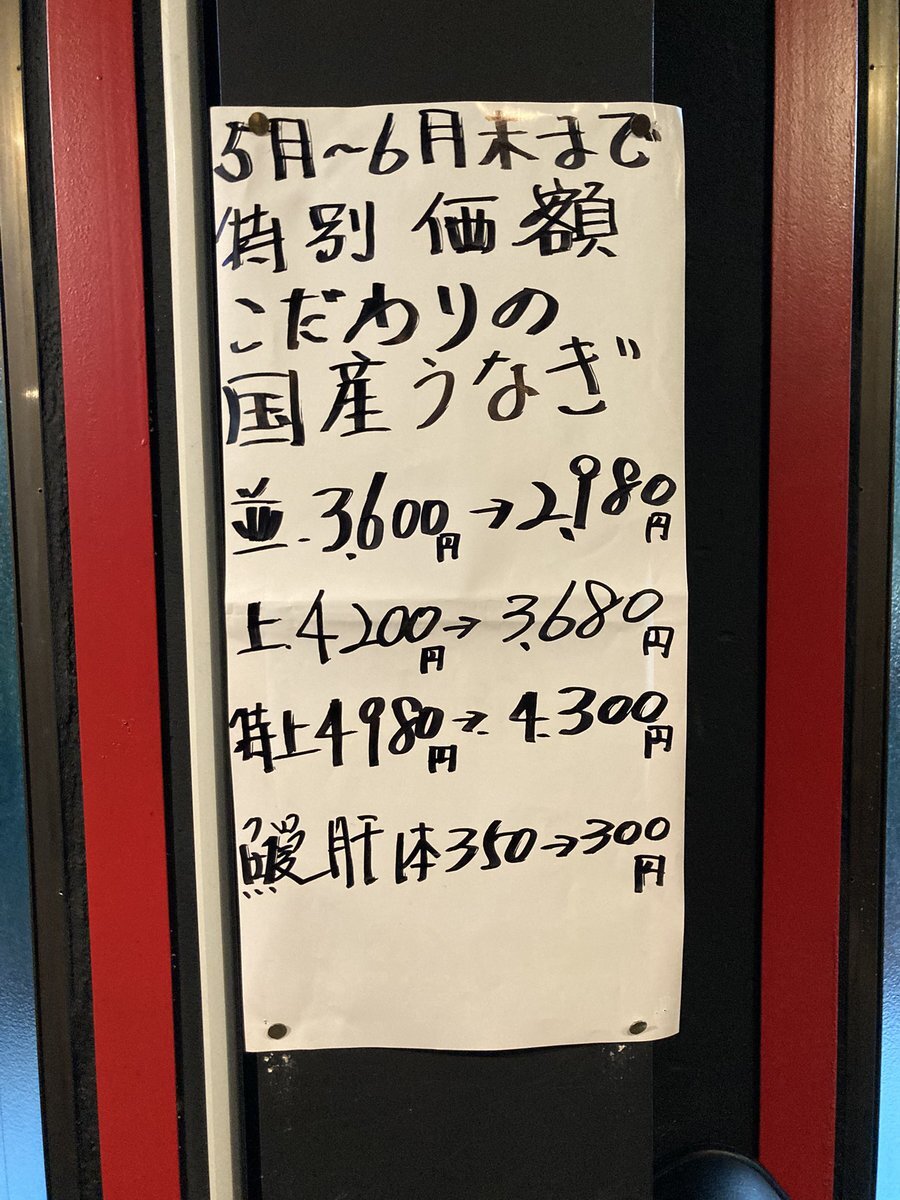 5月〜6月末まで
特別価額
こだわりの
国産うなぎ
並.3,600円→2,980円
上.4200円→3,680円
特上4980円→4.300円
鰻肝体350→300円